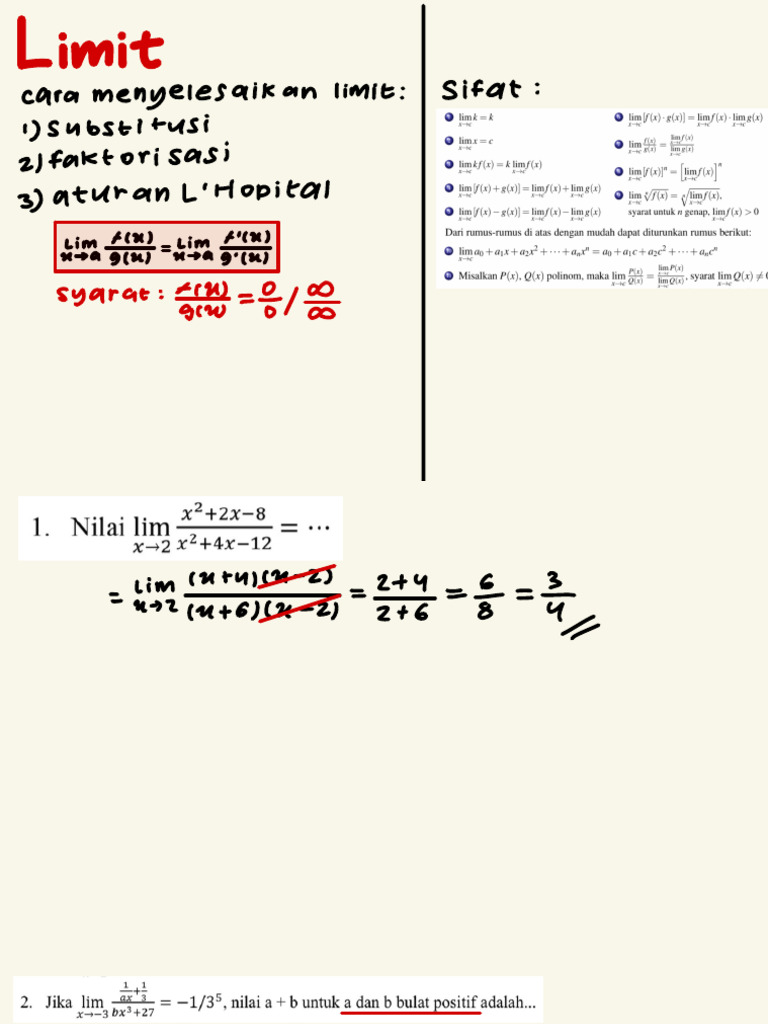 Limit
cara menyelesaikan limit:
1) substitusi
2) faktorisasi
3) aturan L'Hopital
lim x→a f(x)/g(x) = lim x→a f'(x)/g'(x)
syarat: f(x)/g(x) = 0/0 / ∞/∞
Sifat:
lim x→c k = k
lim x→c x = c
lim x→c kf(x) = k lim x→c f(x)
lim x→c [f(x) + g(x)] = lim x→c f(x) + lim x→c g(x)
lim x→c [f(x) − g(x)] = lim x→c f(x) − lim x→c g(x)
lim x→c [f(x) · g(x)] = lim x→c f(x) · lim x→c g(x)
lim x→c f(x)/g(x) = lim x→c f(x) / lim x→c g(x)
lim x→c [f(x)]ⁿ = [lim x→c f(x)]ⁿ
lim x→c ⁿ√f(x) = ⁿ√lim x→c f(x),
syarat untuk n genap, lim x→c f(x) > 0
Dari rumus-rumus di atas dengan mudah dapat diturunkan rumus berikut:
lim x→c a₀ + a₁x + a₂x² + ··· + aₙxⁿ = a₀ + a₁c + a₂c² + ··· + aₙcⁿ
Misalkan P(x), Q(x) polinom, maka lim x→c P(x)/Q(x) = lim x→c P(x) / lim x→c Q(x), syarat lim x→c Q(x) ≠
1. Nilai lim x→2 (x²+2x−8)/(x²+4x−12) = ⋯
= lim x→2 (x+4)(x−2)/(x+6)(x−2) = 2+4/2+6 = 6/8 = 3/4
2. Jika lim x→−3 (1/ax + 1/3)/(bx³+27) = −1/3⁵, nilai a + b untuk a dan b bulat positif adalah...